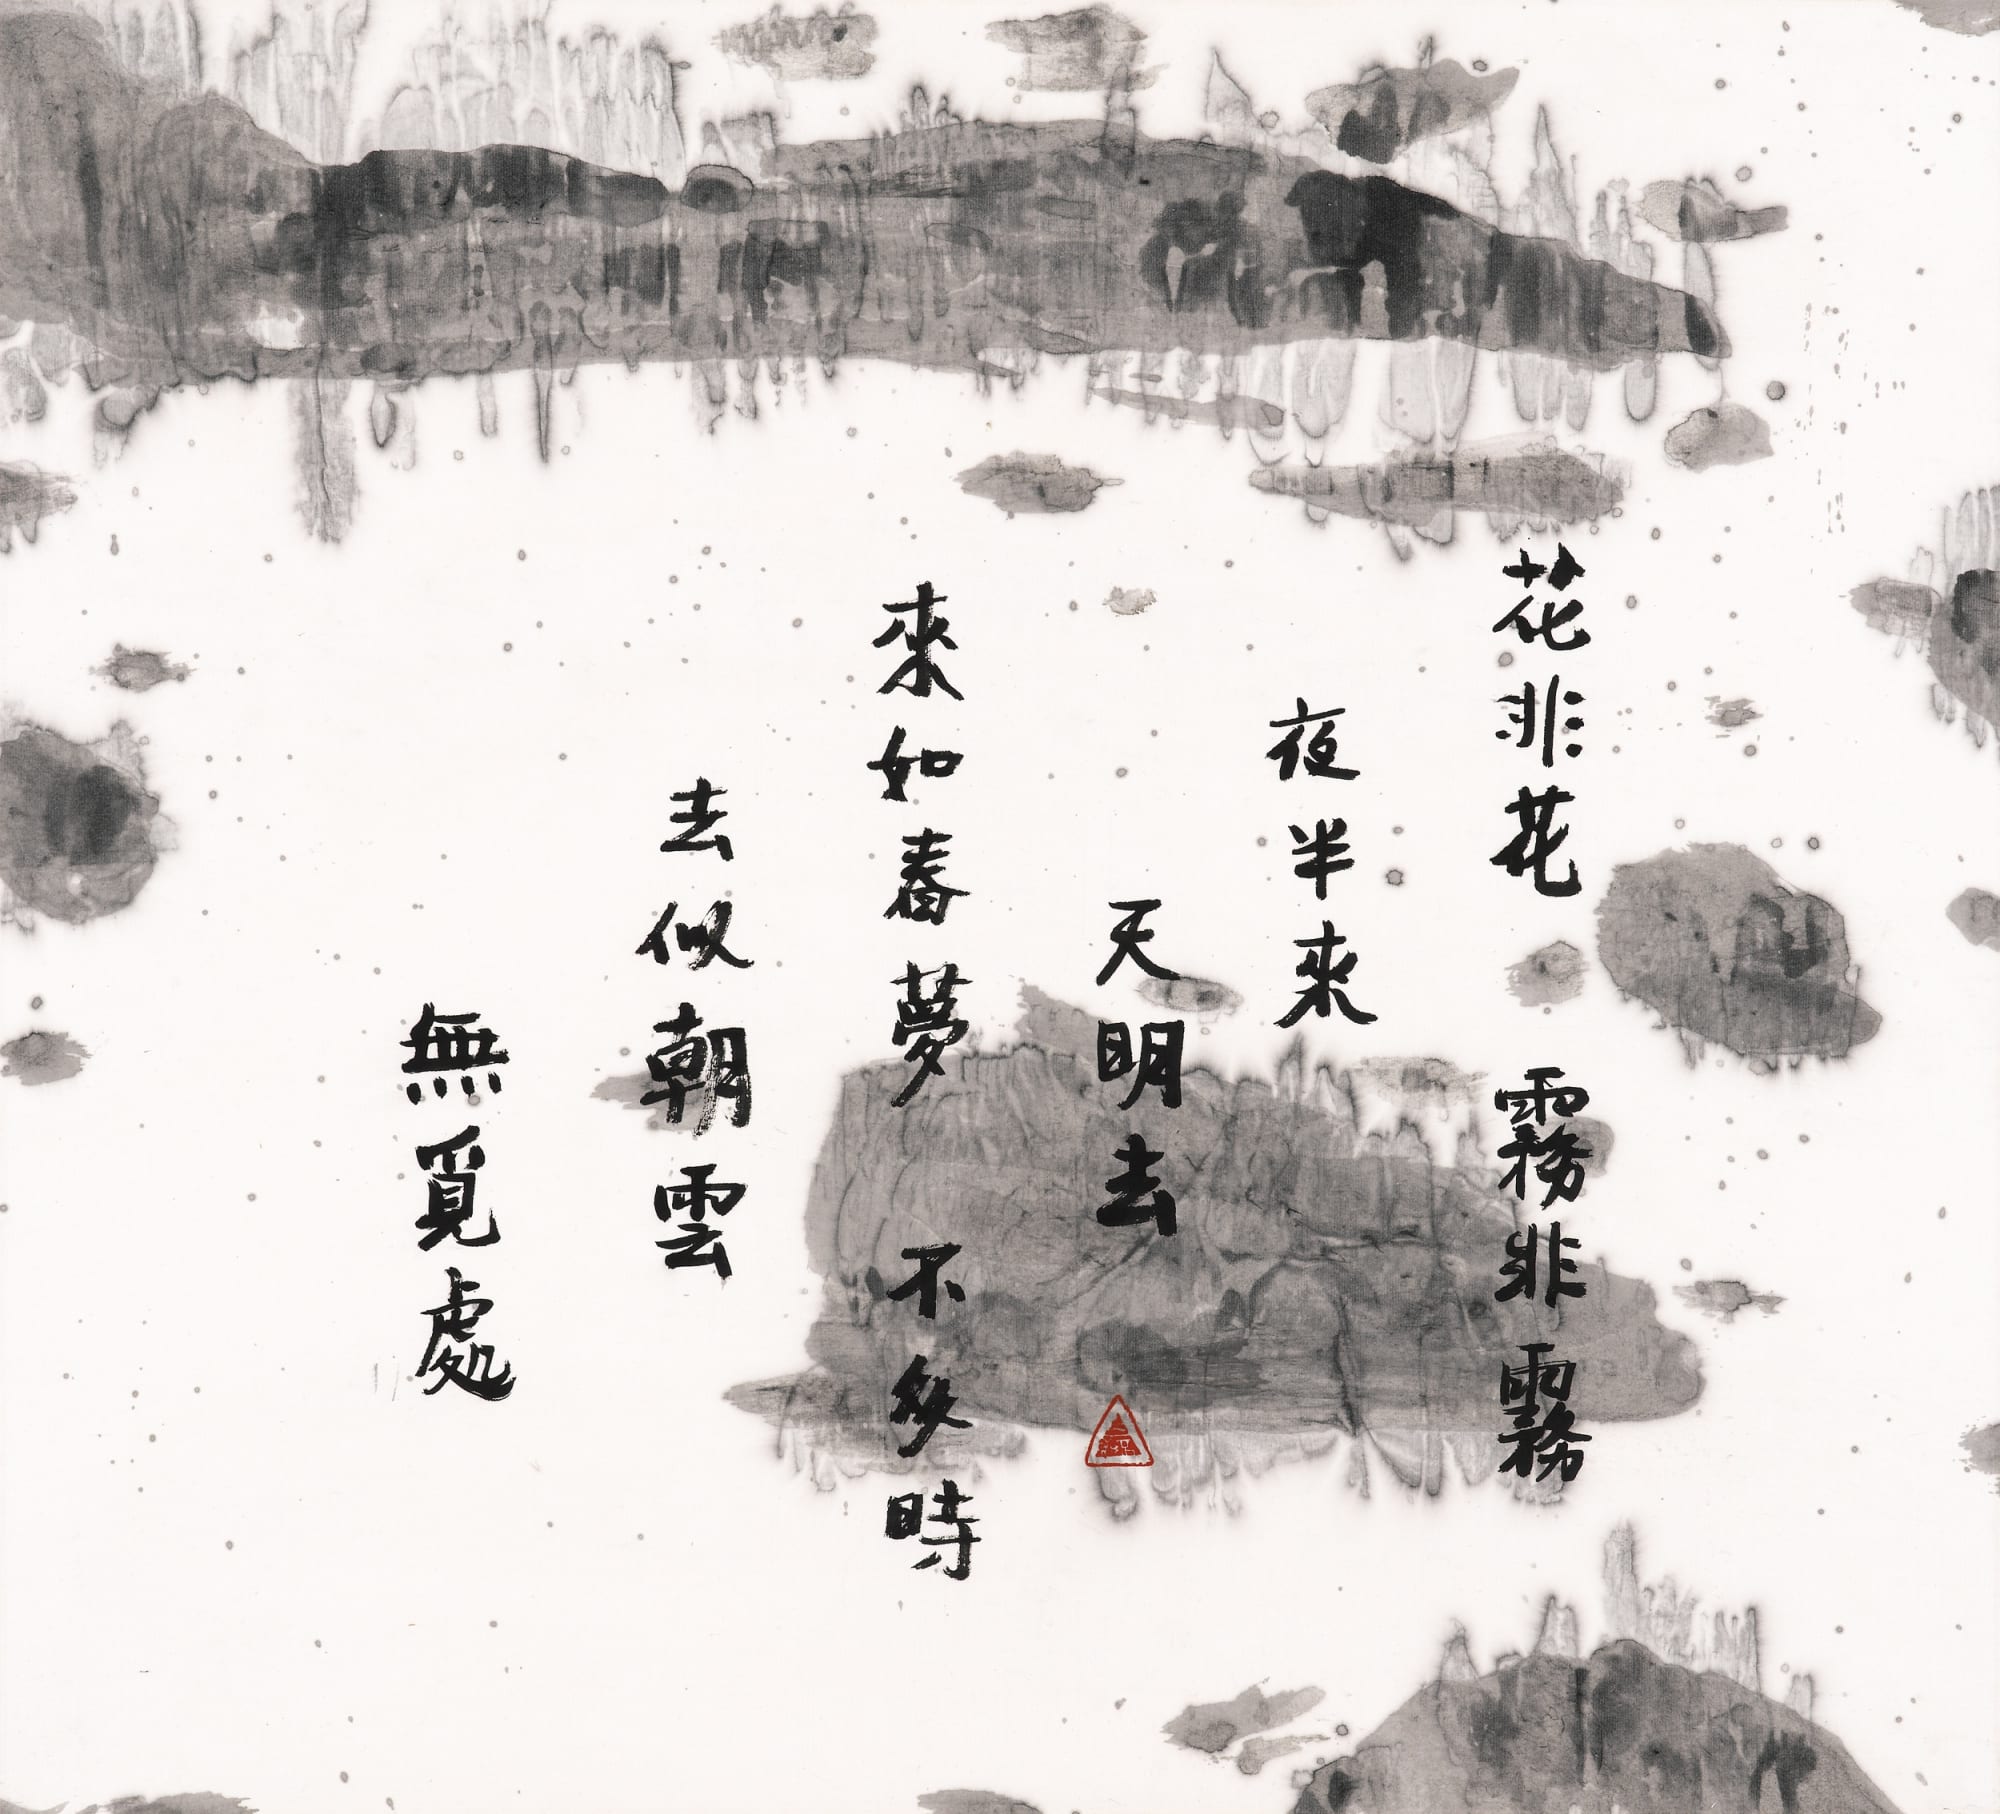 花非花 霧非霧
夜半來
天明去
來如春夢 不多時
去似朝雲
無覓處